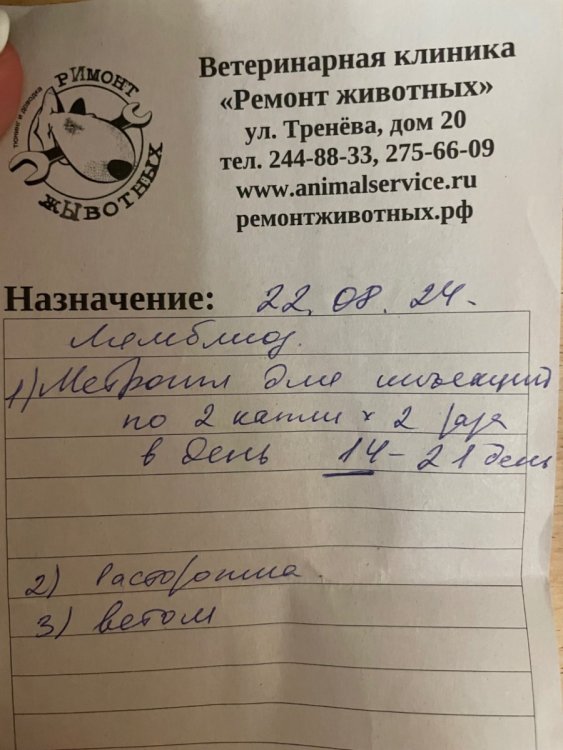 тюнинг и доводка
РИМОНТ
ЖЫВОТНЫХ
Ветеринарная клиника
«Ремонт животных»
ул. Тренёва, дом 20
тел. 244-88-33, 275-66-09
www.animalservice.ru
ремонтживотных.рф
Назначение: 22.08.24.
Лямблиоз.
1) Метрогил для инъекций
по 2 капли х 2 раза
в день 14-21 день
2) Расторопша.
3) ветом